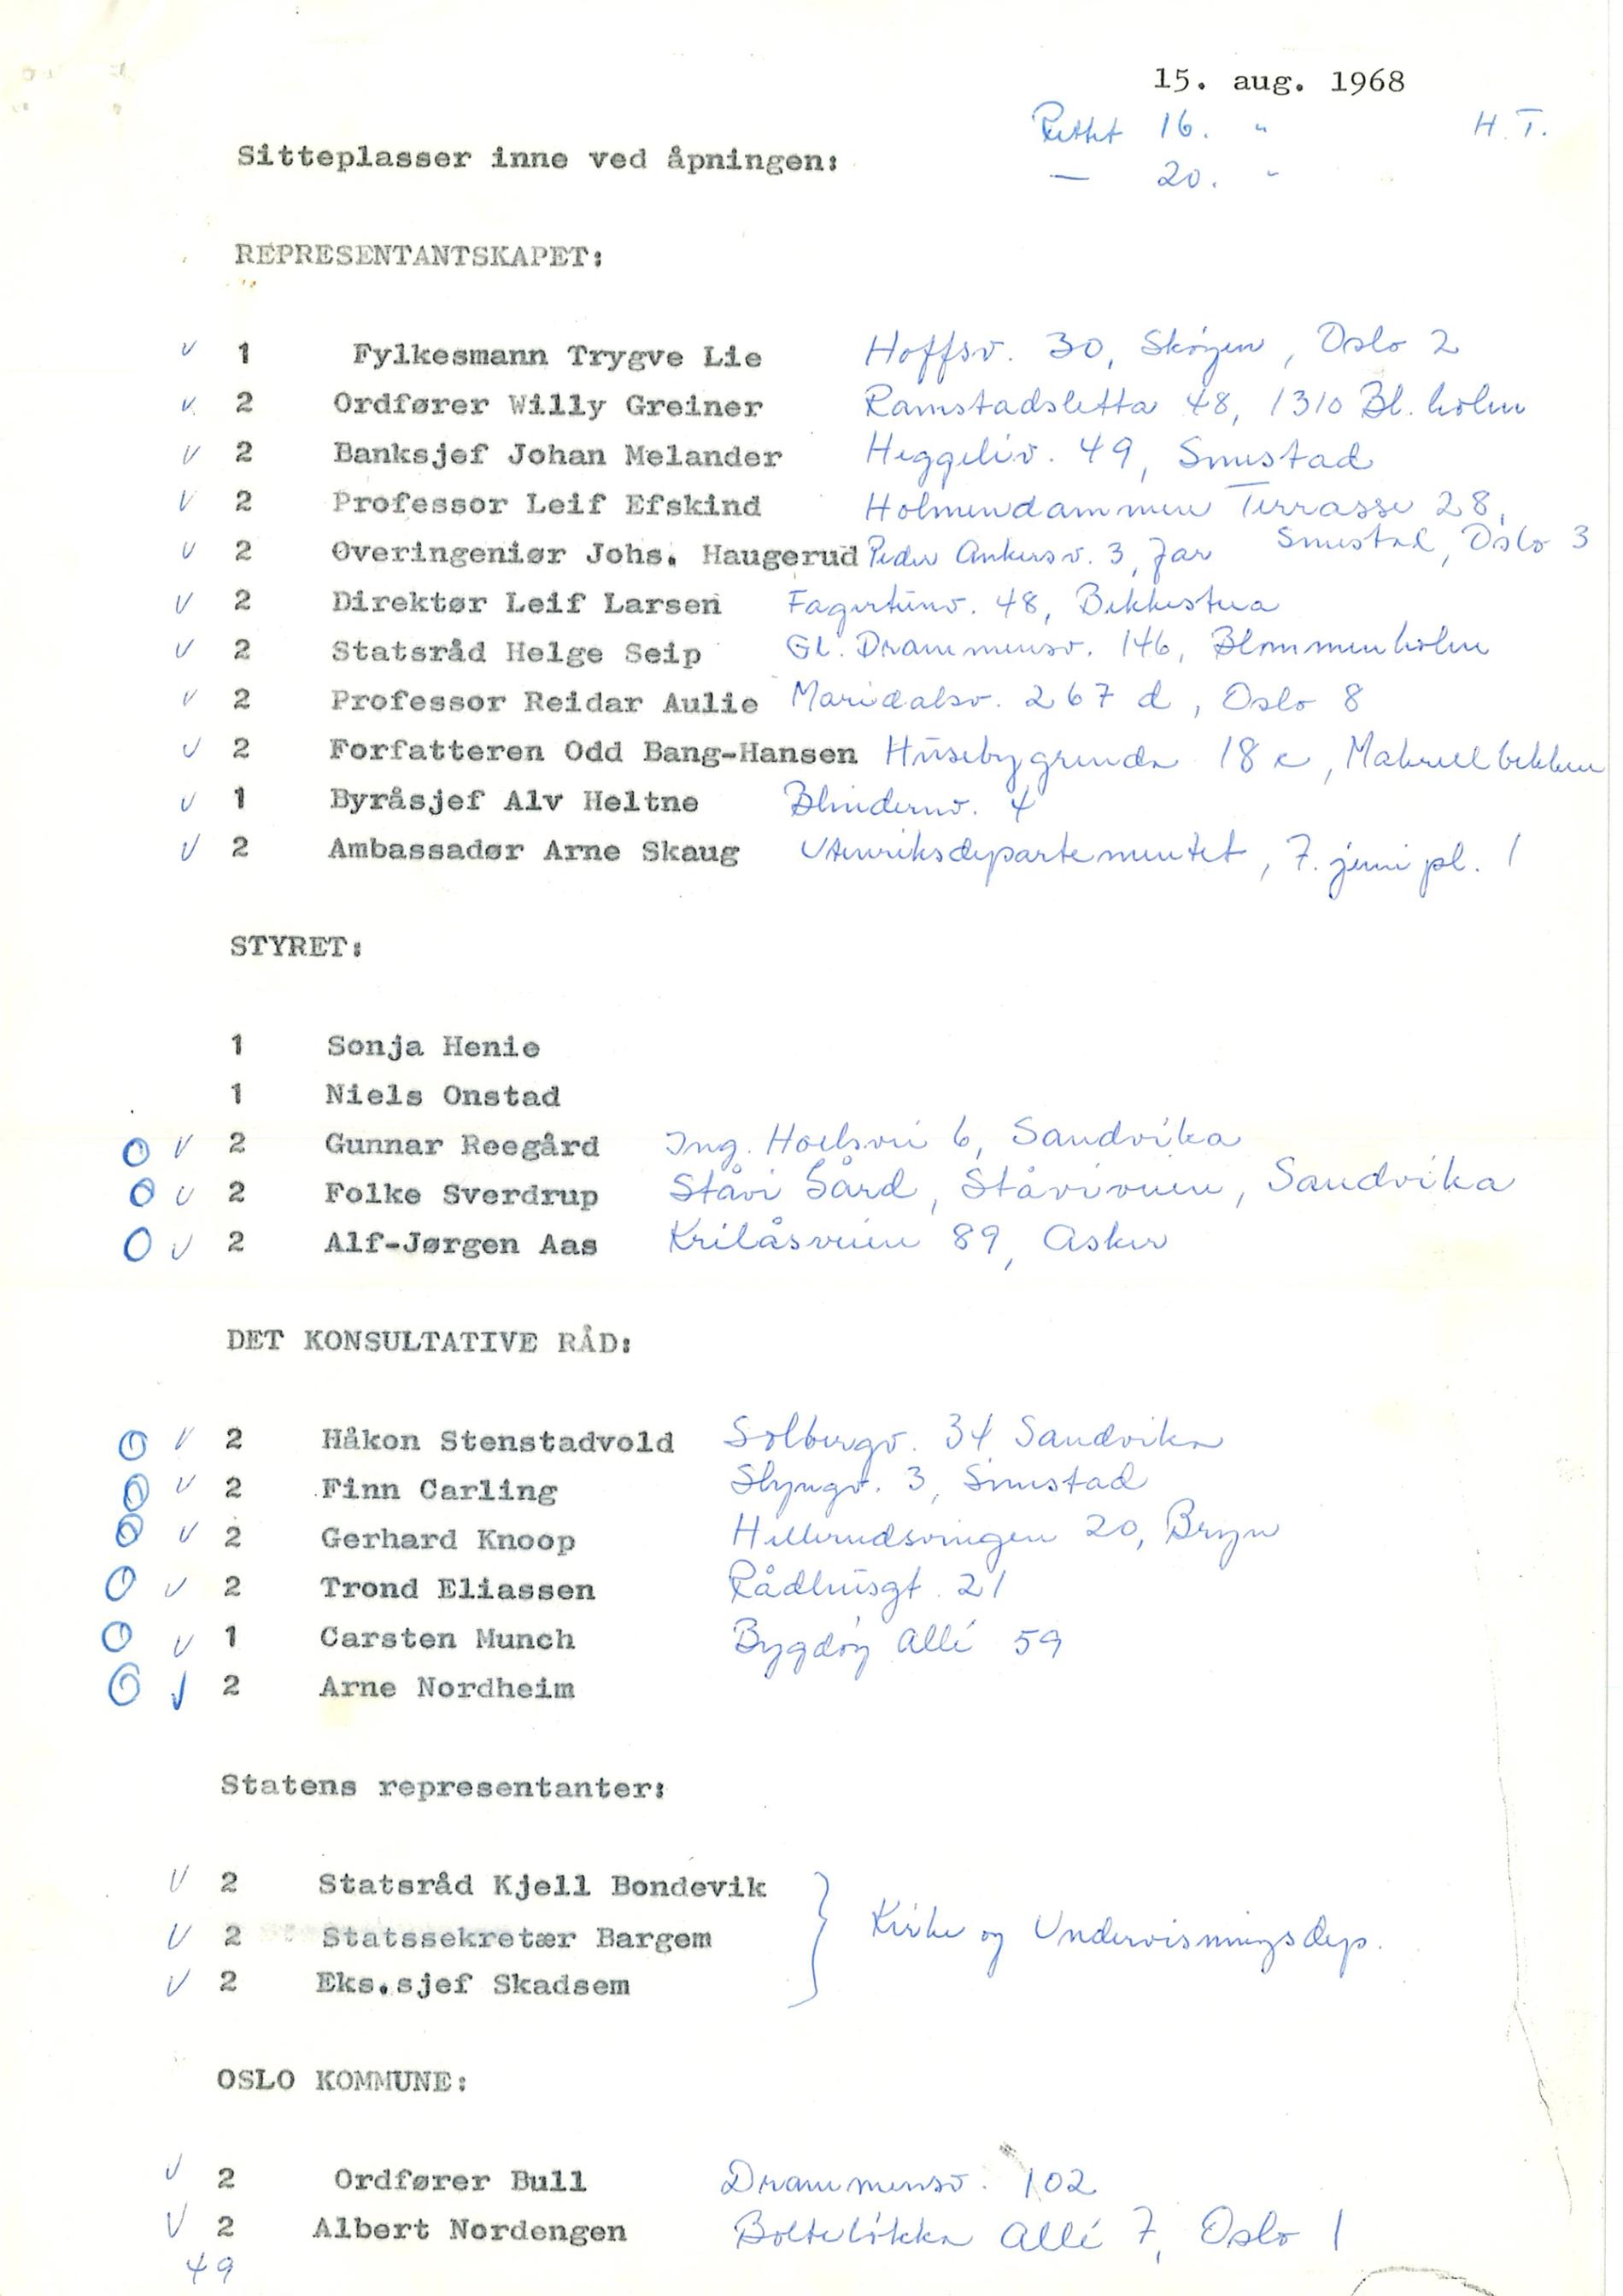 15. aug. 1968
Rettet 16. " H.T.
Sitteplasser inne ved åpningen:
— 20. "
REPRESENTANTSKAPET:
v 1 Fylkesmann Trygve Lie Hoffsv. 30, Skøyen, Oslo 2
v 2 Ordfører Willy Greiner Ramstadsletta 48, 1310 Bl.holm
v 2 Banksjef Johan Melander Heggeliv. 49, Smestad
v 2 Professor Leif Efskind Holmendammen Terrasse 28,
Smestad, Oslo 3
v 2 Overingeniør Johs. Haugerud Peder Ankersv. 3, Jar
v 2 Direktør Leif Larsen Fagertunv. 48, Bekkestua
v 2 Statsråd Helge Seip Gl. Drammensv. 146, Blommenholm
v 2 Professor Reidar Aulie Maridalsv. 267 d, Oslo 8
v 2 Forfatteren Odd Bang-Hansen Husebygrenda 18 c, Makrellbekken
v 1 Byråsjef Alv Heltne Blindernv. 4
v 2 Ambassadør Arne Skaug Utenriksdepartementet, 7. juni pl. 1
STYRET:
1 Sonja Henie
1 Niels Onstad
O v 2 Gunnar Reegård Ing. Hoelsvei 6, Sandvika
O v 2 Folke Sverdrup Ståvi Gård, Ståviveien, Sandvika
O v 2 Alf-Jørgen Aas Kriläsveien 89, Asker
DET KONSULTATIVE RÅD:
O v 2 Håkon Stenstadvold Solbergv. 34 Sandvika
O v 2 Finn Carling Slyngv. 3, Smestad
O v 2 Gerhard Knoop Hellerudsvingen 20, Bryn
O v 2 Trond Eliassen Rådhusgt. 21
O v 1 Carsten Munch Bygdøy Allé 59
O v 2 Arne Nordheim
Statens representanter:
v 2 Statsråd Kjell Bondevik
v 2 Statssekretær Bargem Kirke og Undervisningsdep.
v 2 Eks.sjef Skadsem
OSLO KOMMUNE:
v 2 Ordfører Bull Drammensv. 102
v 2 Albert Nordengen Bolteløkka Allé 7, Oslo 1
49